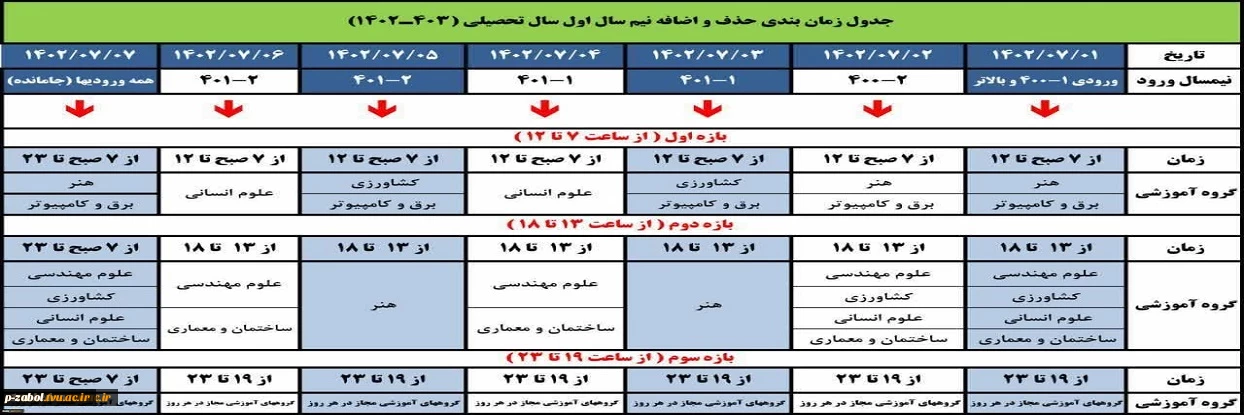 جدول زمان بندی حذف و اضافه نیم سال اول سال تحصیلی (۴۰۳-۱۴۰۲)
تاریخ ۱۴۰۲/۰۷/۰۱ ۱۴۰۲/۰۷/۰۲ ۱۴۰۲/۰۷/۰۳ ۱۴۰۲/۰۷/۰۴ ۱۴۰۲/۰۷/۰۵ ۱۴۰۲/۰۷/۰۶ ۱۴۰۲/۰۷/۰۷
نیمسال ورود ورودی ۱-۴۰۰ و بالاتر ۲-۴۰۰ ۱-۴۰۱ ۱-۴۰۱ ۲-۴۰۱ ۲-۴۰۱ همه ورودیها (جامانده)
بازه اول (از ساعت ۷ تا ۱۲)
زمان از ۷ صبح تا ۱۲ از ۷ صبح تا ۱۲ از ۷ صبح تا ۱۲ از ۷ صبح تا ۱۲ از ۷ صبح تا ۱۲ از ۷ صبح تا ۱۲ از ۷ صبح تا ۲۳
گروه آموزشی هنر هنر کشاورزی علوم انسانی کشاورزی علوم انسانی هنر
برق و کامپیوتر برق و کامپیوتر برق و کامپیوتر برق و کامپیوتر برق و کامپیوتر
بازه دوم (از ساعت ۱۳ تا ۱۸)
زمان از ۱۳ تا ۱۸ از ۱۳ تا ۱۸ از ۱۳ تا ۱۸ از ۱۳ تا ۱۸ از ۱۳ تا ۱۸ از ۱۳ تا ۱۸ از ۷ صبح تا ۲۳
گروه آموزشی علوم مهندسی علوم مهندسی هنر علوم مهندسی هنر علوم مهندسی علوم مهندسی
کشاورزی کشاورزی کشاورزی
علوم انسانی علوم انسانی ساختمان و معماری ساختمان و معماری علوم انسانی
ساختمان و معماری ساختمان و معماری ساختمان و معماری
بازه سوم (از ساعت ۱۹ تا ۲۳)
زمان از ۱۹ تا ۲۳ از ۱۹ تا ۲۳ از ۱۹ تا ۲۳ از ۱۹ تا ۲۳ از ۱۹ تا ۲۳ از ۱۹ تا ۲۳ از ۷ صبح تا ۲۳
گروه آموزشی گروههای آموزشی مجاز در هر روز گروههای آموزشی مجاز در هر روز گروههای آموزشی مجاز در هر روز گروههای آموزشی مجاز در هر روز گروههای آموزشی مجاز در هر روز گروههای آموزشی مجاز در هر روز گروههای آموزشی مجاز در هر روز